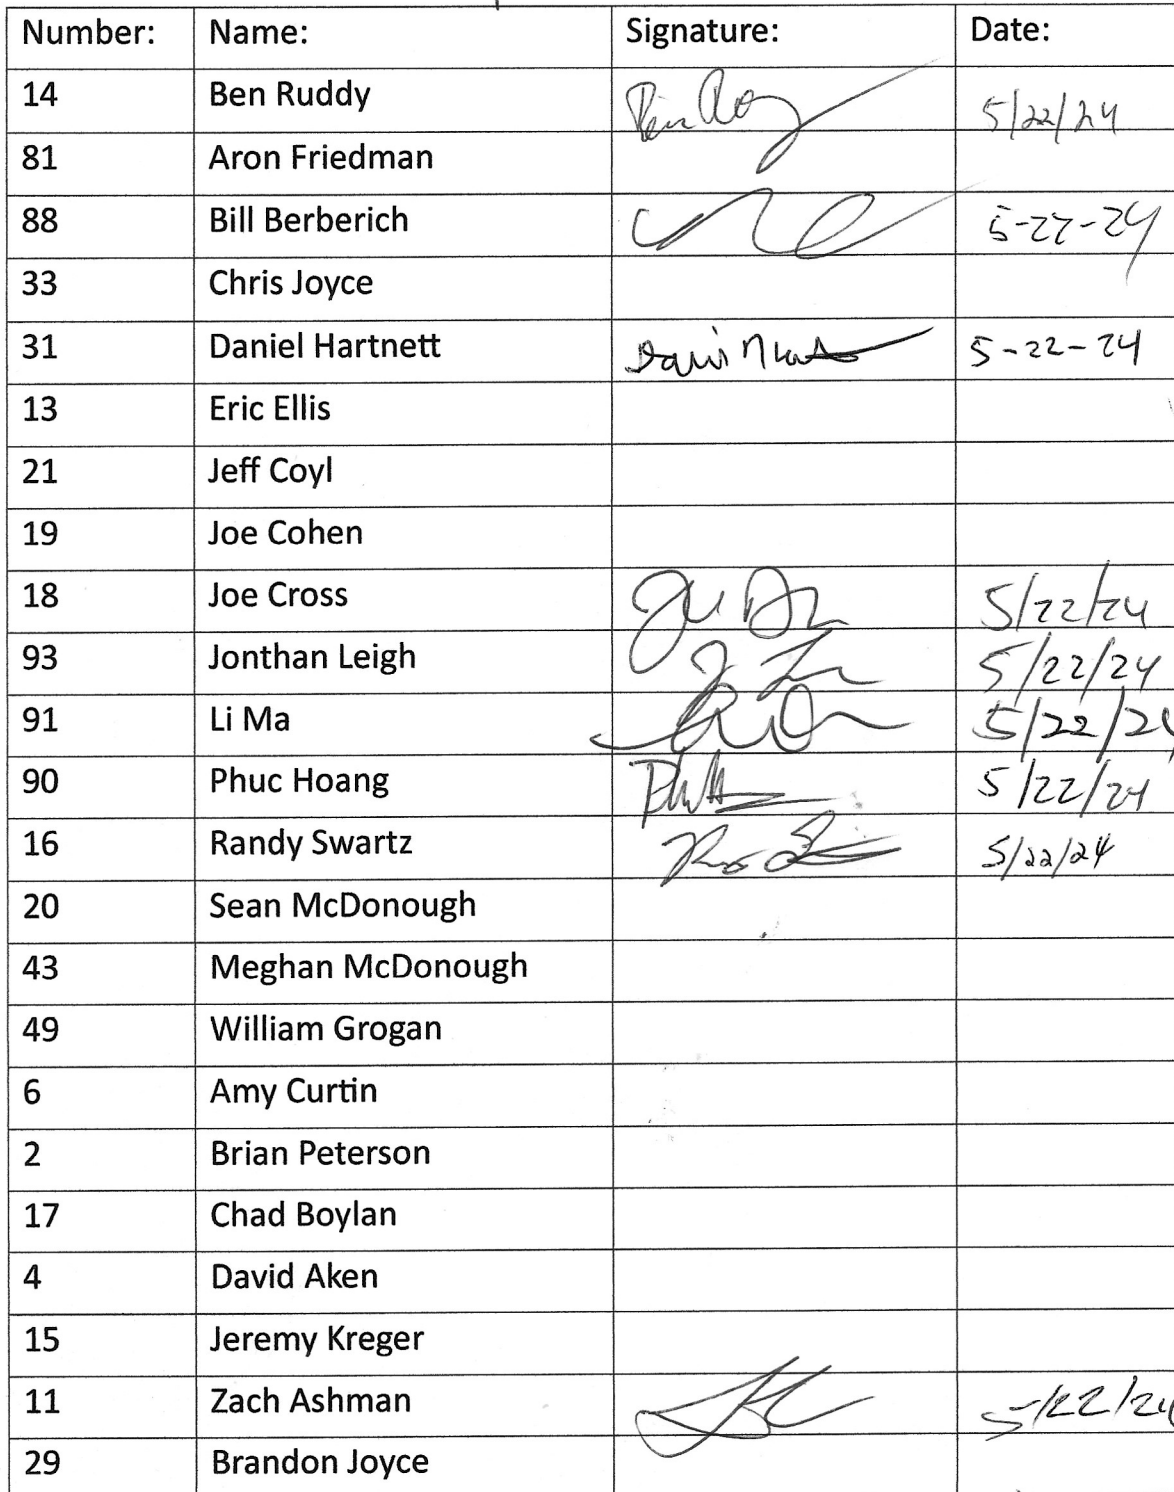 Number: Name: Signature: Date:
14 Ben Ruddy 5/22/24
81 Aron Friedman
88 Bill Berberich 5-22-24
33 Chris Joyce
31 Daniel Hartnett 5-22-24
13 Eric Ellis
21 Jeff Coyl
19 Joe Cohen
18 Joe Cross 5/22/24
93 Jonthan Leigh 5/22/24
91 Li Ma 5/22/24
90 Phuc Hoang 5/22/24
16 Randy Swartz 5/22/24
20 Sean McDonough
43 Meghan McDonough
49 William Grogan
6 Amy Curtin
2 Brian Peterson
17 Chad Boylan
4 David Aken
15 Jeremy Kreger
11 Zach Ashman 5/22/24
29 Brandon Joyce